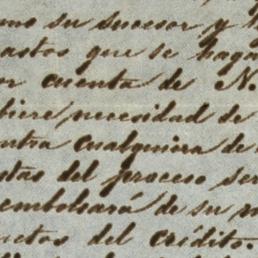 mo su sucesor y
astos que se haga
or cuenta de N.
biere, necesidad de
ntra cualquiera de
tas del proceso ser
embolsará de su
uctos del crédito.